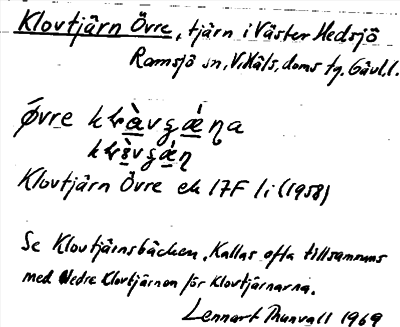 Klovtjärn Övre, tjärn i Väster Hedsjö
Ramsjö sn, V.Häls. doms tg. Gävl.l.
Övre
Klovtjärn Övre ek 17F 1i (1958)
Se Klovtjärnsbäcken. Kallas ofta tillsammans
med Nedre Klovtjärnen för Klovtjärnarna.
Lennart Thunvall 1969